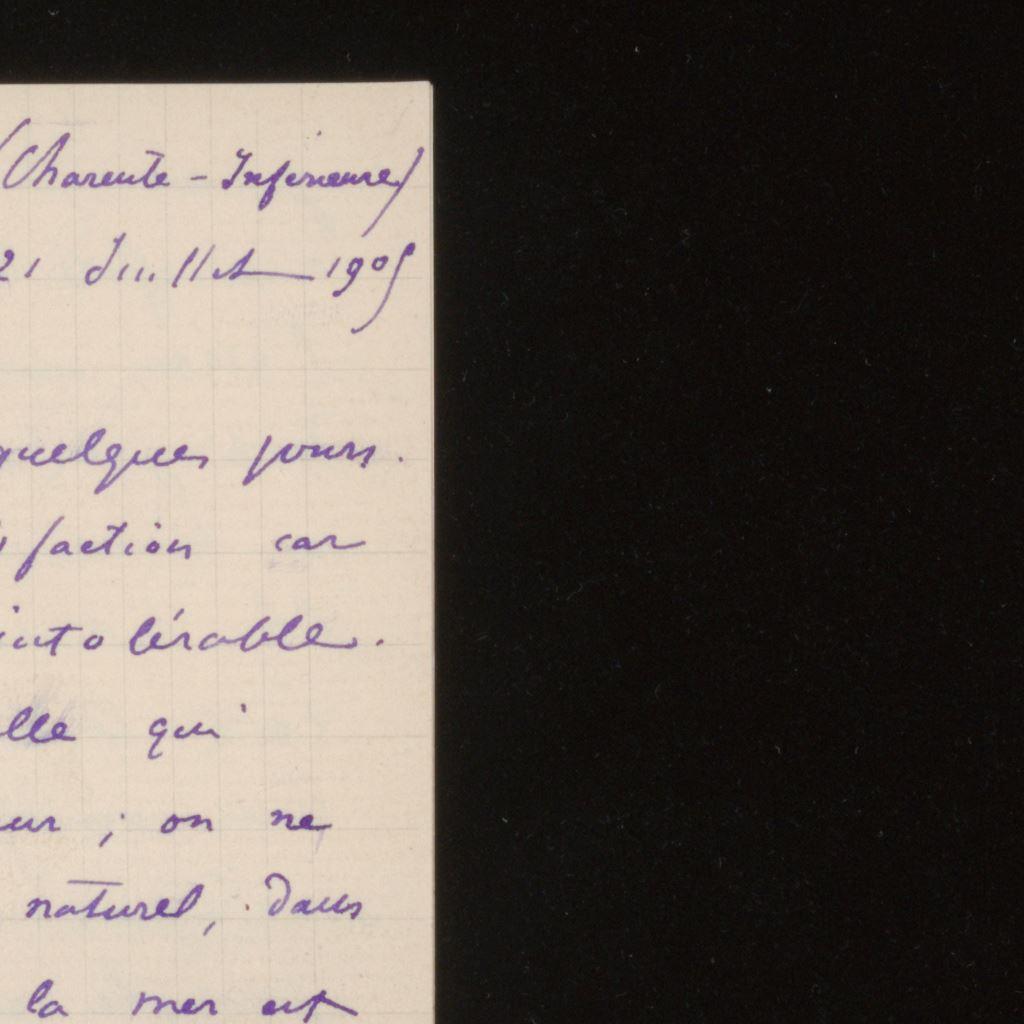 (Charente-Inférieure)
21 Juillet 1905
quelques jours.
faction car
intolérable.
elle qui
; on ne
naturel, dans
la mer est